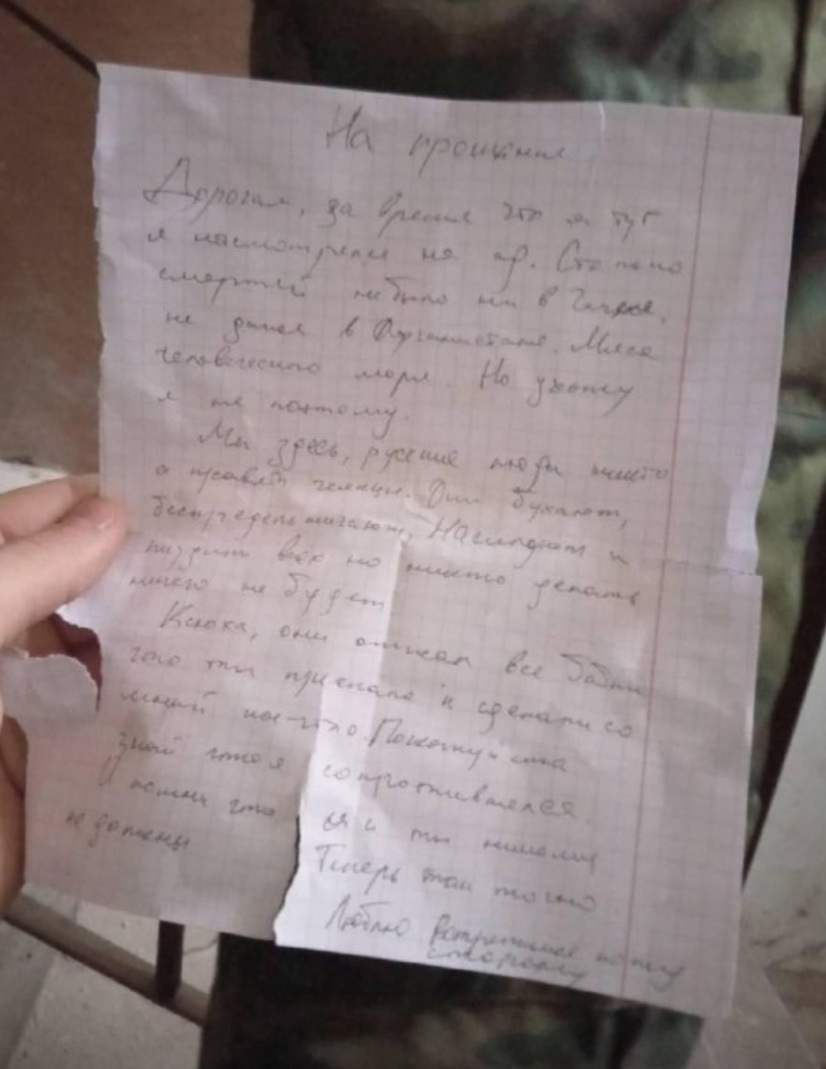 На прощения
Дорогая, за время что я тут
я насмотрелся на ад. Столько
смертей небыло ни в Чечне,
не даже в Афганистане. Мяса
человеческого море. Но ухожу
я не поэтому.
Мы здесь, русские люди никто
а правят чеченцы. Они бухают,
беспредельничают, Насилуют и
пиздят всех но никто делать
ничего не будет
Ксюха, они отжали все бабки
что ты прислала и сделали со
мной кое-что. Пожалуйста
знай что я сопротивлялся.
Помни что я и ты никому
не должны Теперь так точно
Люблю встретимся по ту
сторону